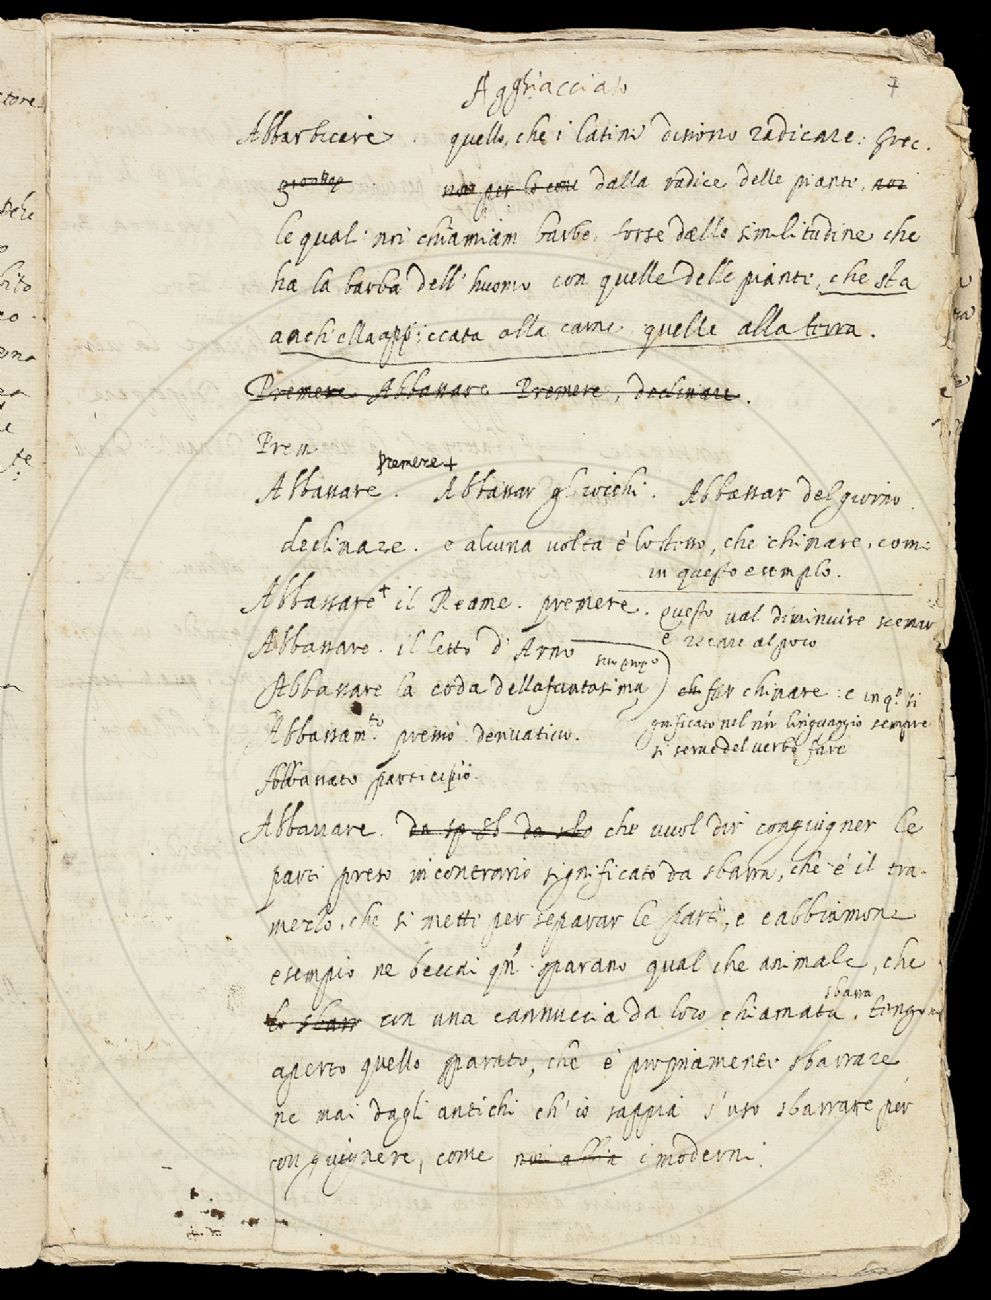 Agghiacciato
7
Abbarbicare. quello, che i latini dissono radicare: Grec.
non per lo come dalla radice delle piante, noi
le quali noi chiamiam barbe, forse dallo similitudine che
ha la barba dell' huomo con quelle delle piante, che sta
anch' ella appiccata alla carne quelle alla terra.
Premere Abbassare Premere, declinare.
Prem
premere +
Abbassare. Abbassar gl'occhi. Abbassar del giorno.
declinare. e alcuna volta è lo stesso, che chinare, come
in questo esemplo.
Abbassare + il Reame. premere. questo val diminuire scemare
e recare al poco
Abbassare. il letto d' Arno
Abbassare la coda della fantasima) ch far chinare: e in q.o si
gnificato nel nr̃o linguaggio sempre
si serve del verbo fare
Abbassam.to derivativo.
Abbassato participio.
Abbarrare. che vuol dir congiugner le
parti preso in contrario significato da sbarra, che è il tra-
mezzo, che si mette per separar le parti, e abbiamone
esempio ne beccai qñ sparano qual che animale, che
sbarra
lo sbarr con una cannuccia da loro chiamata, tengono
aperto quello sparato, che è propriamente sbarrare
ne mai dagli antichi ch' io sappia s'uso sbarrare per
congiugnere, come i moderni.